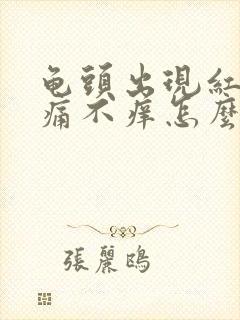 龟頭出現紅
痛不痒怎麼
張麗鴎